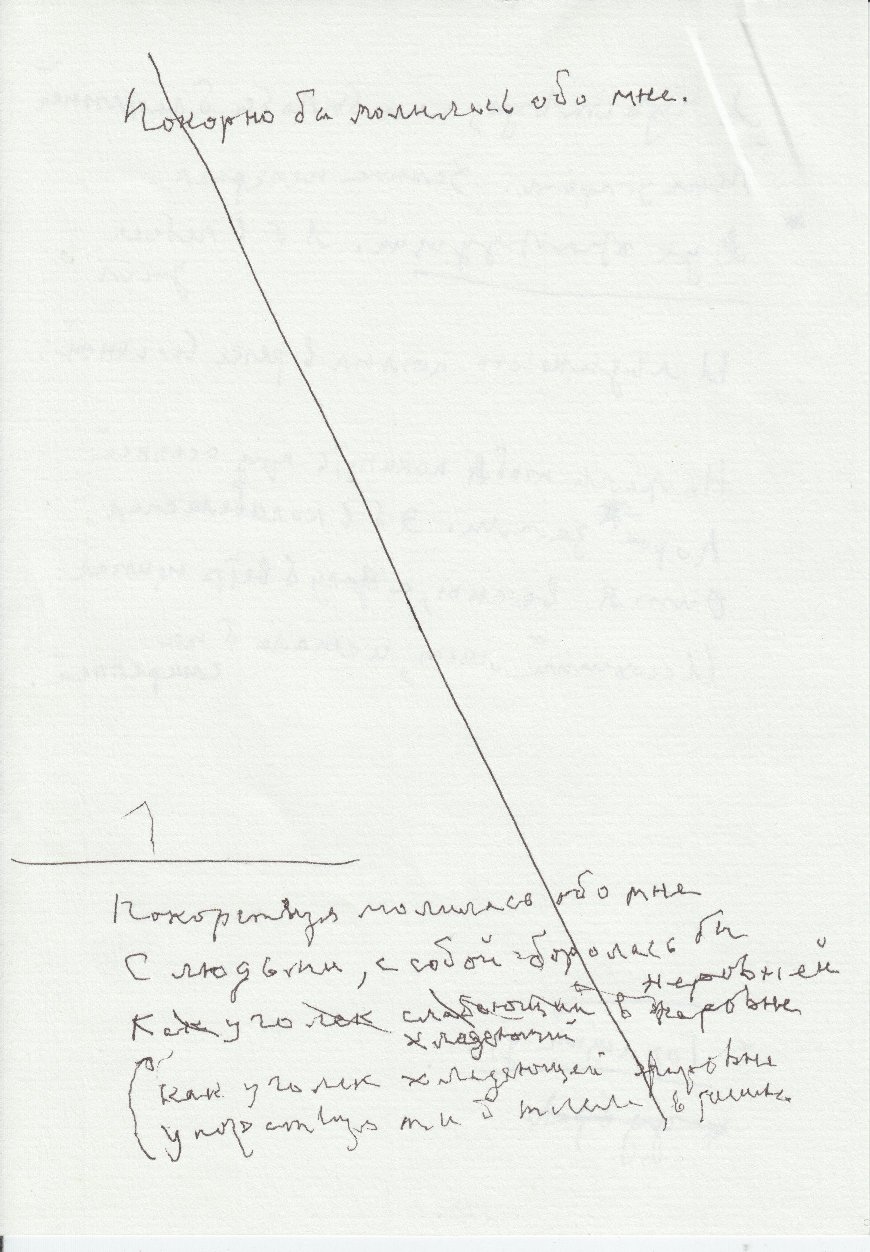 Покорно бы молилась обо мне.
1
Покорствуя молилась обо мне
С людьми, с собой боролась бы
неровней
Как уголек слабеющий в жаровне
хладеющий
как уголек хладеющей жаровне
упорствуя ты б тлела в